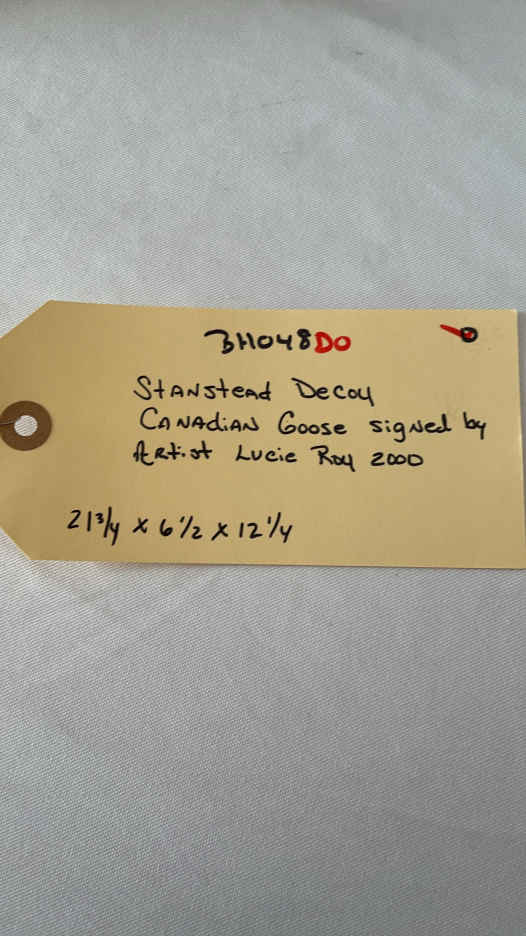 BH048DO
Stanstead Decoy
Canadian Goose signed by
Artist Lucie Roy 2000
21 3/4 x 6 1/2 x 12 1/4